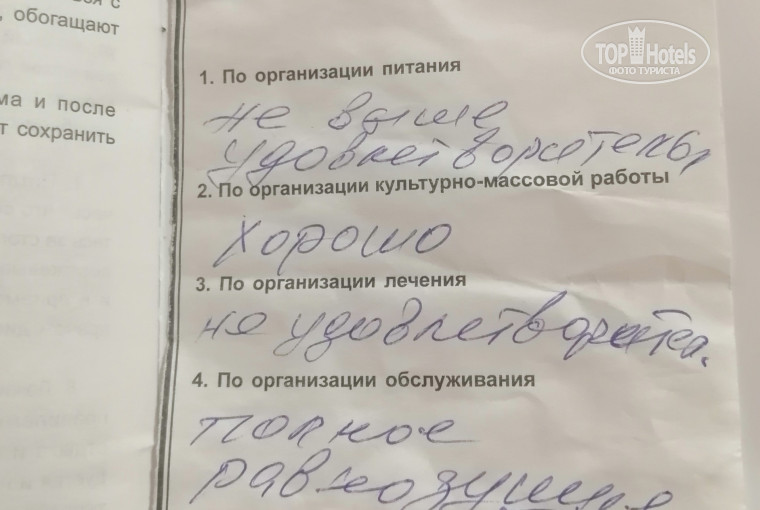 , обогащают
ма и после
т сохранить
TOP Hotels
ФОТО ТУРИСТА
1. По организации питания
не выше
удовлетворительн
2. По организации культурно-массовой работы
Хорошо
3. По организации лечения
не удовлетворител.
4. По организации обслуживания
полное
равнодушие